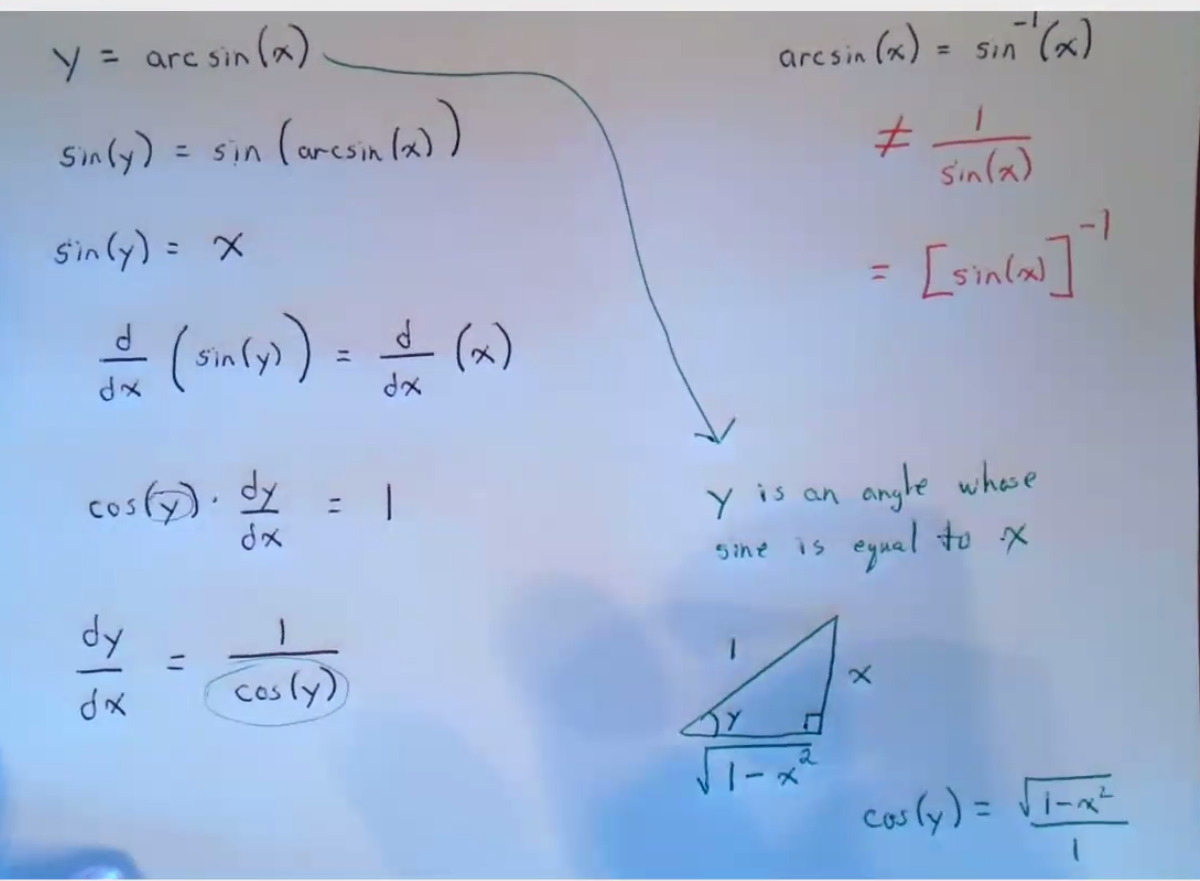 y = arcsin(x)
sin(y) = sin(arcsin(x))
sin(y) = x
d/dx (sin(y)) = d/dx (x)
cos(y) · dy/dx = 1
dy/dx = 1/cos(y)
arcsin(x) = sin⁻¹(x)
≠ 1/sin(x)
= [sin(x)]⁻¹
y is an angle whose
sine is equal to x
1
x
y
√(1-x²)
cos(y) = √(1-x²)/1